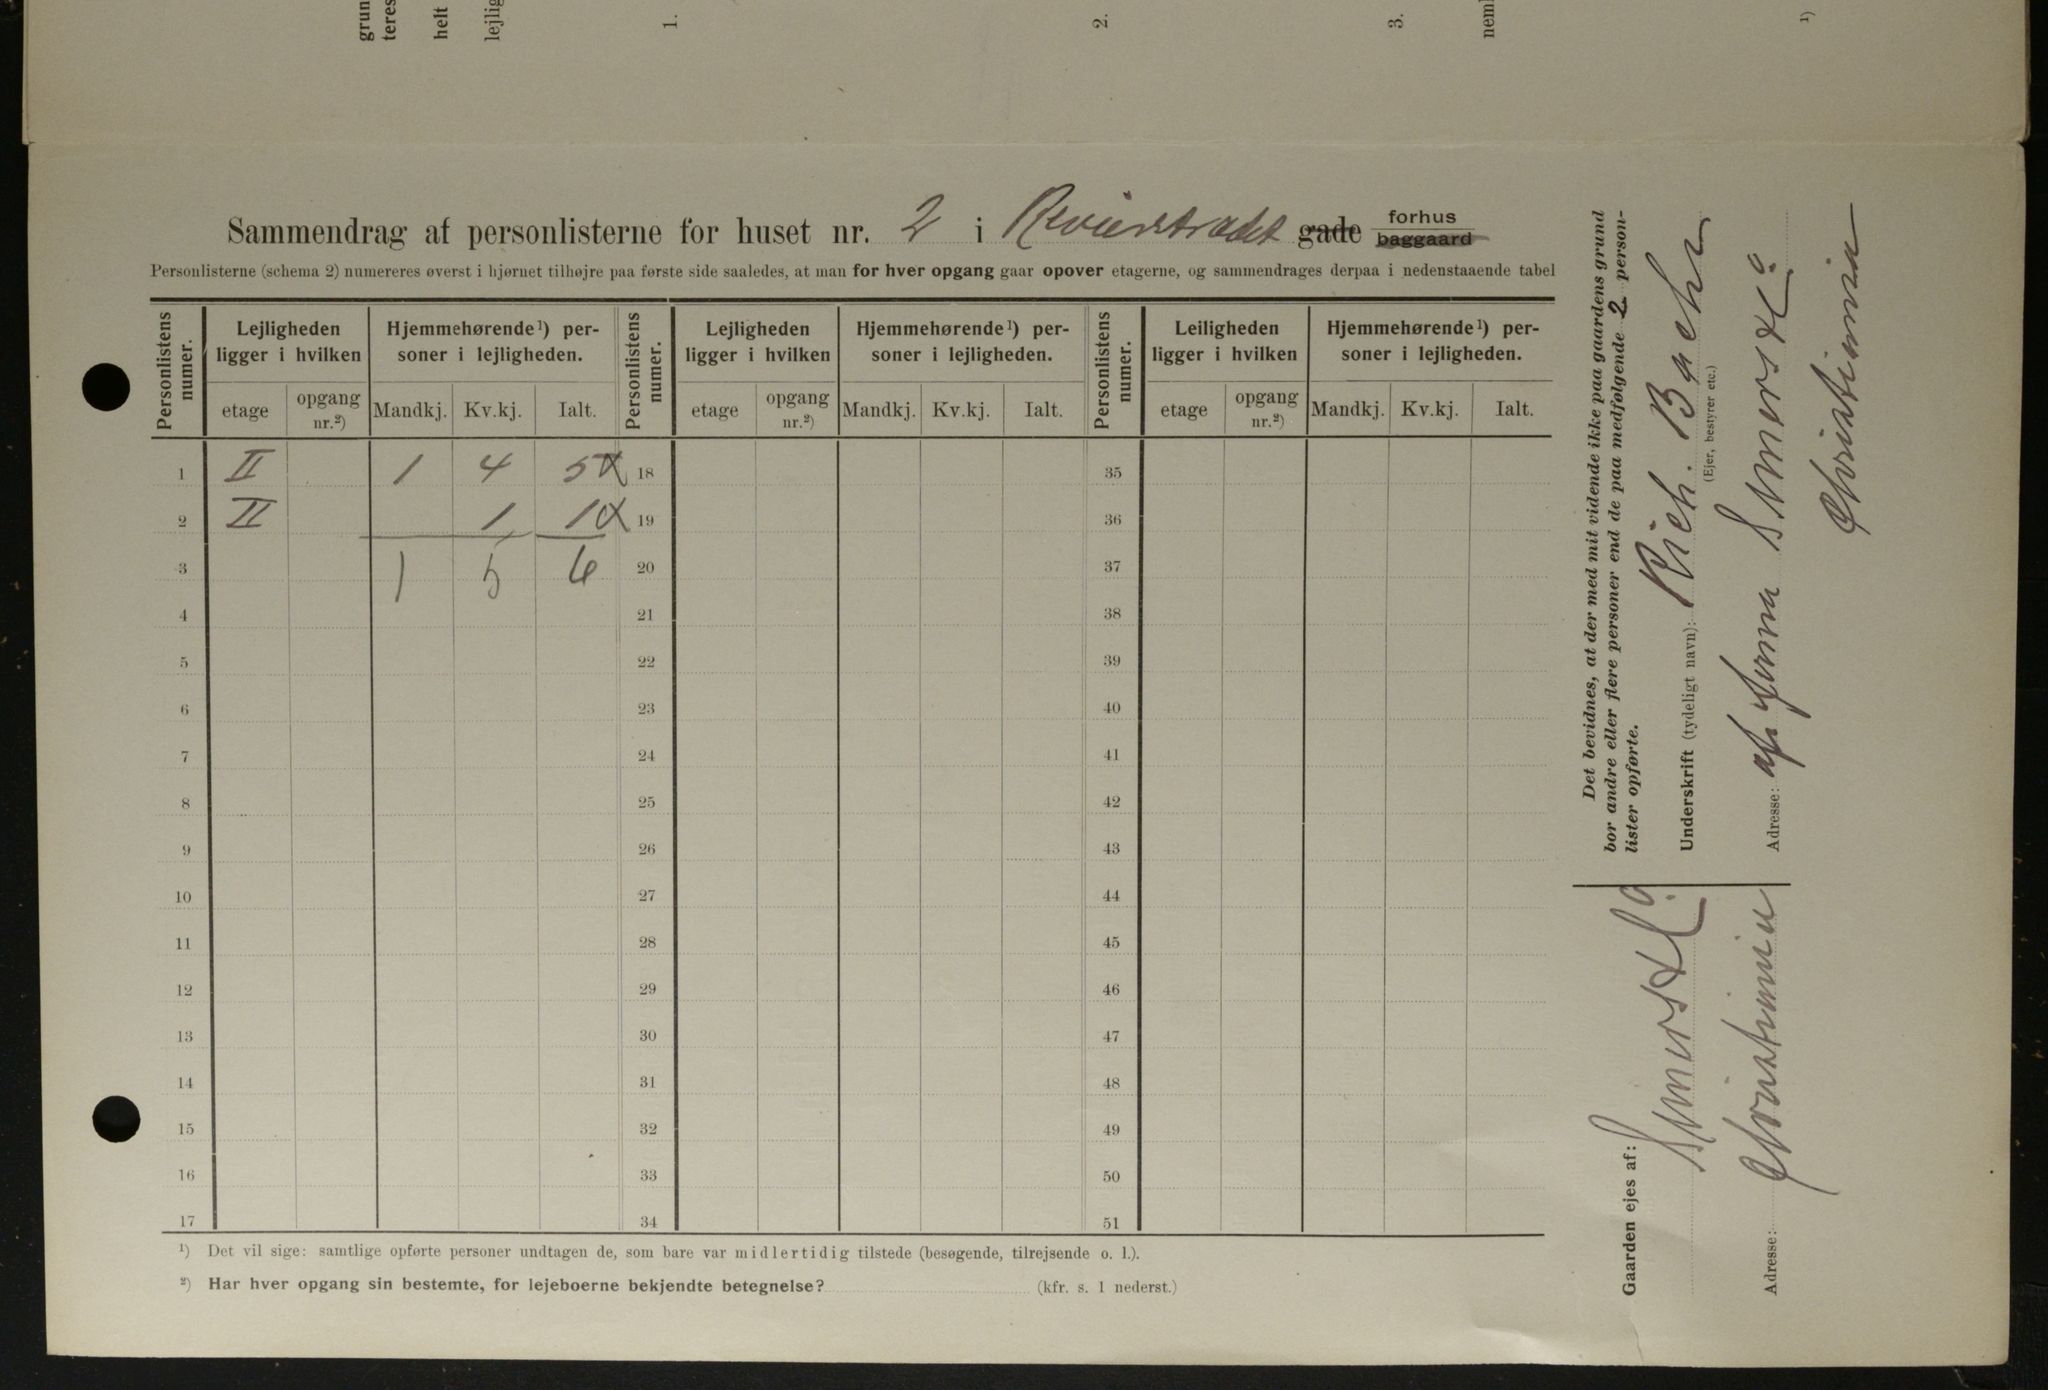 grun
teres
helt
lejlig
1.
2.
3.
neml
1)
Sammendrag af personlisterne for huset nr. 2 i Revierstrædet gade forhus
baggaard
Personlisterne (schema 2) numereres øverst i hjørnet tilhøjre paa første side saaledes, at man for hver opgang gaar opover etagerne, og sammendrages derpaa i nedenstaaende tabel
Personlistens numer. Lejligheden ligger i hvilken Hjemmehørende¹) personer i lejligheden. Personlistens numer. Lejligheden ligger i hvilken Hjemmehørende¹) personer i lejligheden. Personlistens numer. Leiligheden ligger i hvilken Hjemmehørende¹) personer i lejligheden.
etage opgang nr.²) Mandkj. Kv.kj. Ialt. etage opgang nr.²) Mandkj. Kv.kj. Ialt. etage opgang nr.²) Mandkj. Kv.kj. Ialt.
1 II 1 4 5x 18 35
2 II 1 1x 19 36
3 1 5 6 20 37
4 21 38
5 22 39
6 23 40
7 24 41
8 25 42
9 26 43
10 27 44
11 28 45
12 29 46
13 30 47
14 31 48
15 32 49
16 33 50
17 34 51
¹) Det vil sige: samtlige opførte personer undtagen de, som bare var midlertidig tilstede (besøgende, tilrejsende o. l.).
²) Har hver opgang sin bestemte, for lejeboerne bekjendte betegnelse? (kfr. s. 1 nederst.)
Det bevidnes, at der med mit vidende ikke paa gaardens grund
bor andre eller flere personer end de paa medfølgende 2 person-
lister opførte.
Underskrift (tydeligt navn): Rich. Bache
(Ejer, bestyrer etc.)
Adresse: af firma
Christiania
Gaarden ejes af:
Adresse: Christiania